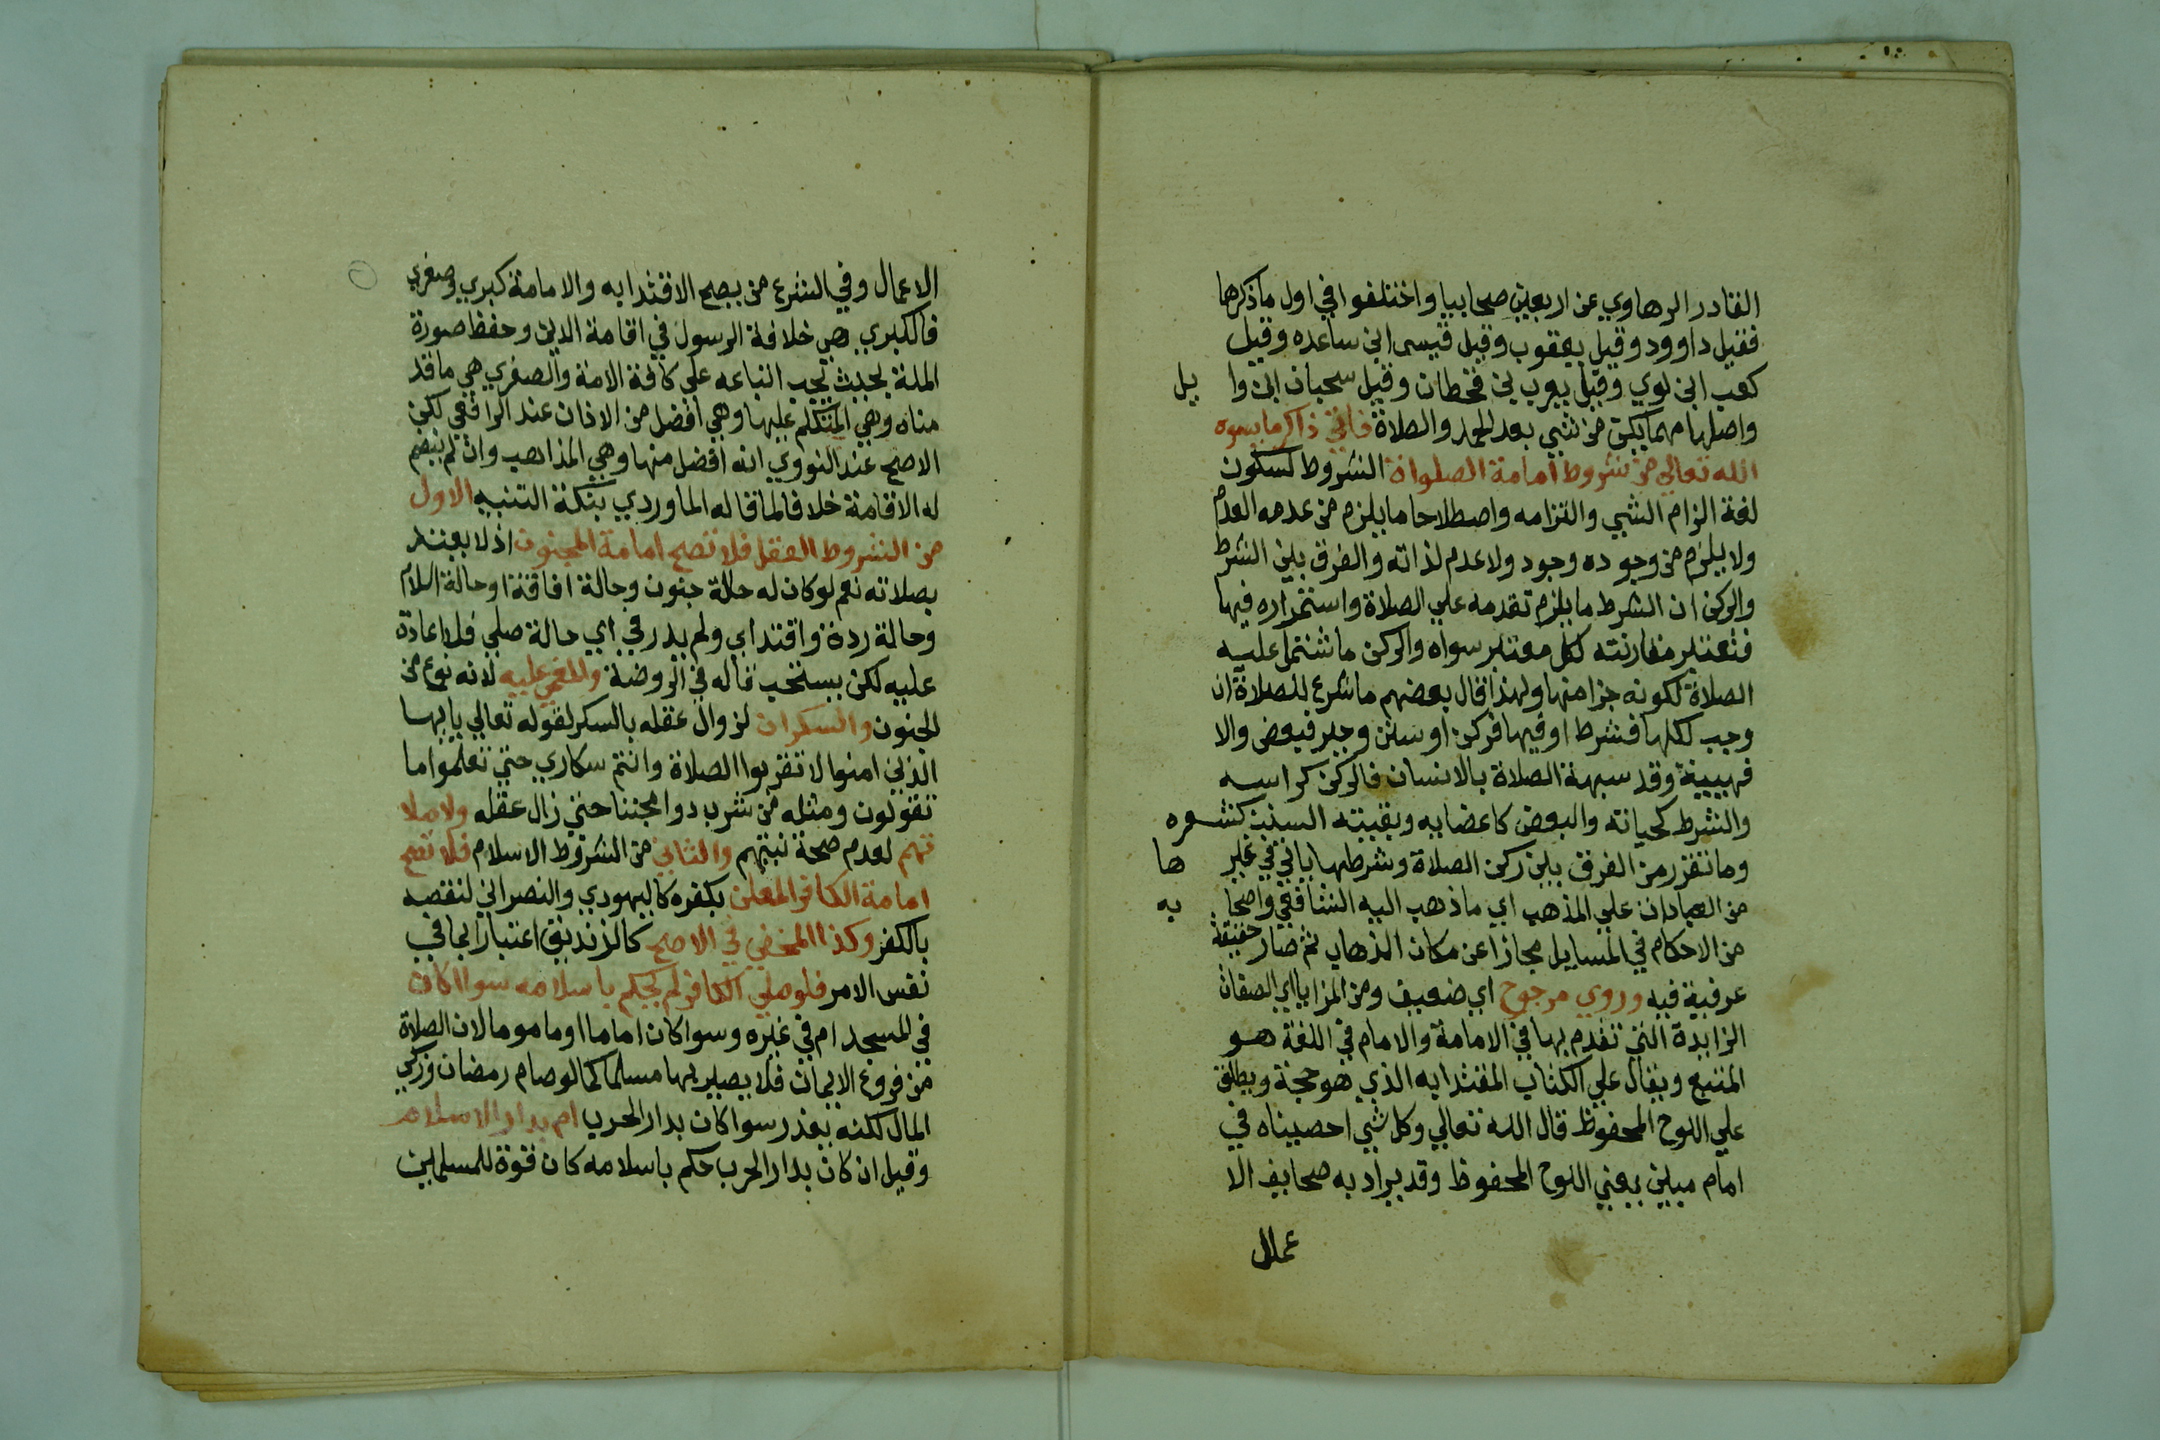 القادر الرهاوي عن اربعين صحابيا واختلفوا في اول ما ذكرها
فقيل داوود وقيل يعقوب وقيل قيس ابن ساعده وقيل
كعب ابن لوي وقيل يعرب بن قحطان وقيل سحبان ابن وايل
واصلها مهما يكن من شي بعد الحمد والصلاة فاني ذاكر ما يسره
الله تعالي من شروط امامة الصلوات الشروط لسكون
لغة الزام الشي والتزامه واصطلاحا ما يلزم من عدمه العدم
ولا يلزم من وجوده وجود ولا عدم لذاته والفرق بين الشرط
والركن ان الشرط ما يلزم تقدمه علي الصلاة واستمراره فيها
فتعتبر مقارنته لكل معتبر سواه والركن ما شتمل عليه
الصلاة لكونه جزا منها ولهذا قال بعضهم ما شرع للصلاة ان
وجب لكلها فشرط او فيها فركن او سنن وجبر فبعض والا
فهيية وقد سبهة الصلاة بالانسان فالركن كراسه
والشرط كحياته والبعض كاعضايه وبقيته السنن كشعره
وما تقرر من الفرق بين ركن الصلاة وشرطها ياتي في غيرها
من العبادات علي المذهب اي ما ذهب اليه الشافعي واصحابه
من الاحكام في المسايل مجازا عن مكان الذهاب ثم صار حقيقة
عرفية فيه وروي مرجوح اي ضعيف ومن المزايا اي الصفات
الزايدة التي تقدم بها في الامامة والامام في اللغة هو
المتبع ويقال علي الكتاب المقتدا به الذي هو حجة ويطلق
علي اللوح المحفوظ قال الله تعالي وكل شي احصيناه في
امام مبين يعني اللوح المحفوظ وقد يراد به صحايف الا
عمال
الاعمال وفي الشرع من يصح الاقتدا به والامامة كبري وصغري
فالكبري هي خلافة الرسول في اقامة الدين وحفظ صورة
الملة بحيث يجب اتباعه علي كافة الامة والصغري هي ما قد
مناه وهي المتكلم عليها وهي افضل من الاذان عند الرافعي لكن
الاصح عند النووي انه افضل منها وهي المذاهب وان لم ينضم
له الاقامة خلافا لما قاله الماوردي بنكة التنبيه الاول
من الشروط العقل فلا تصح امامة المجنون اذ لا يعتد
بصلاته نعم لو كان له حالة جنون وحالة افاقة او حالة اسلام
وحالة ردة واقتدا اي ولم يدر في اي حالة صلي فلا اعادة
عليه لكن يستحب قاله في الروضة والمغمي عليه لانه نوع من
الجنون والسكران لزوال عقله بالسكر لقوله تعالي يا يها
الذين امنوا لا تقربوا الصلاة وانتم سكاري حتي تعلموا ما
تقولون ومثله من شرب دوا مجننا حتي زال عقله ولا ملا
تهم لعدم صحة نيتهم والثاني من الشروط الاسلام فلا تصح
امامة الكافر المعلن بكفره كاليهودي والنصراني لنقصه
بالكفر وكذا المخفي في الاصح كالزنديق اعتبارا بما في
نفس الامر فلو صلي الكافر لم يحكم باسلامه سوا اكان
في المسجد ام في غيره وسوا كان اماما او ماموما لان الصلاة
من فروع الايمان فلا يصير بها مسلما كما لو صام رمضان وزكي
المال لكنه يعذر سوا كان بدار الحرب ام بدار الاسلام
وقيل ان كان بدار الحرب حكم باسلامه كان قوة للمسلمين